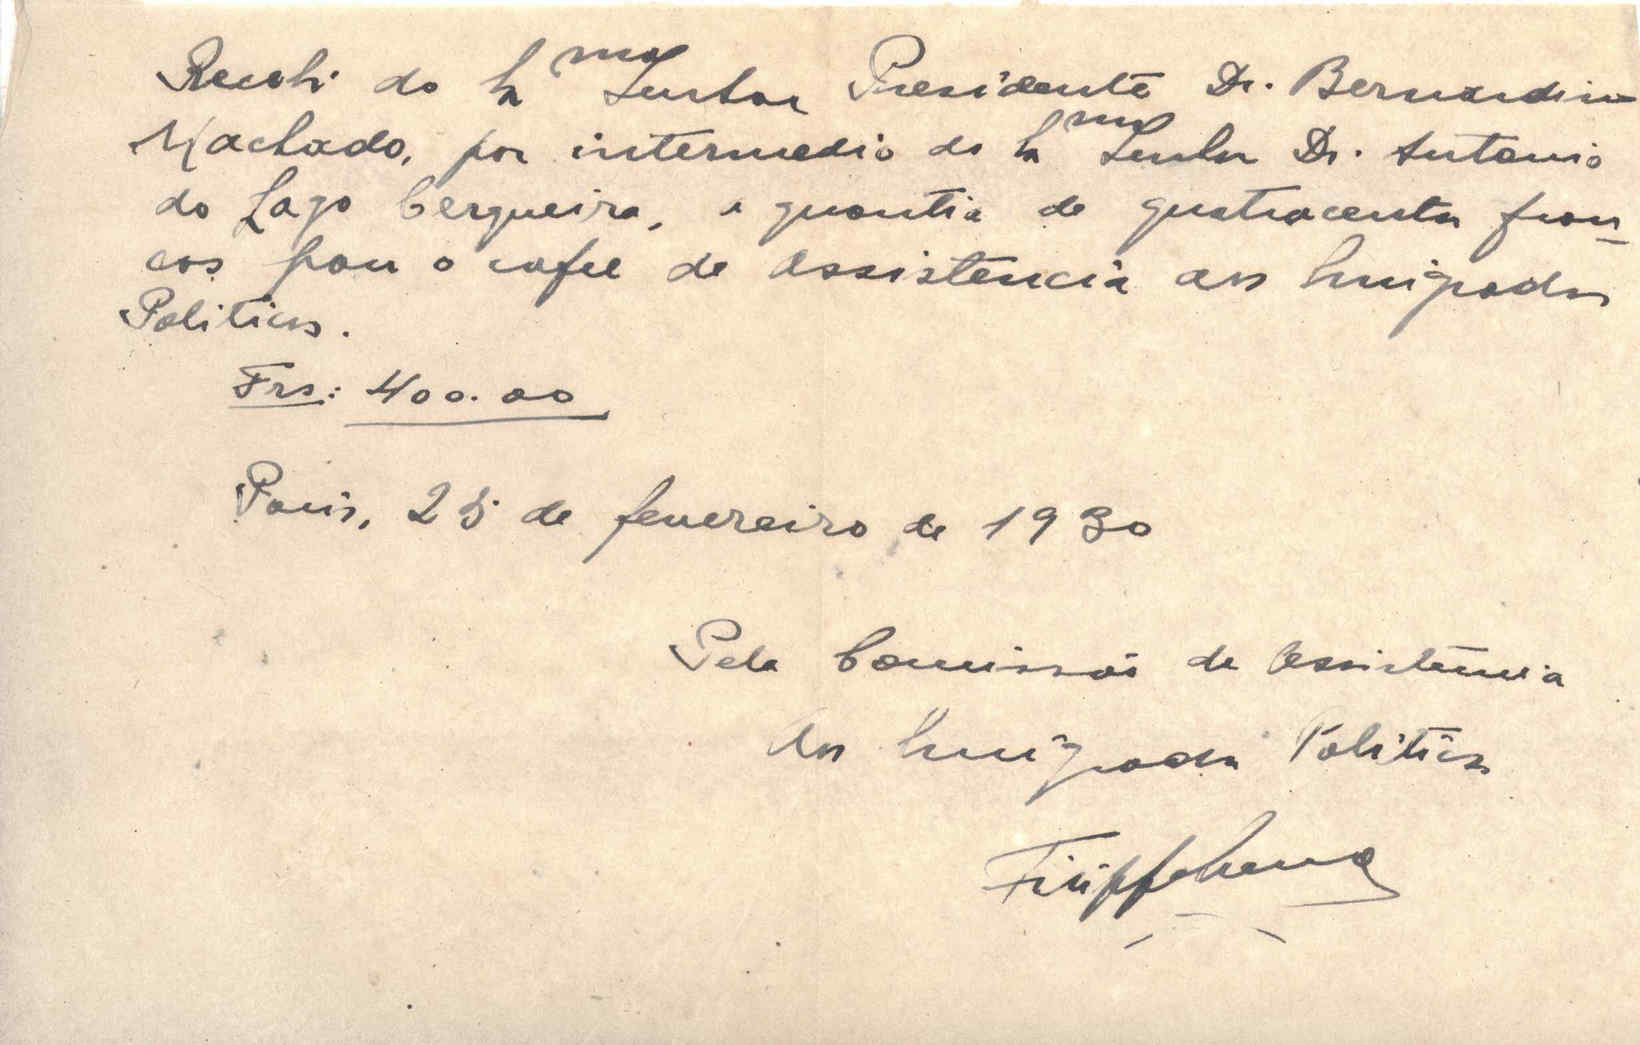 Recebi do Ex.mo Senhor Presidente Dr. Bernardino
Machado, por intermedio do Ex.mo Senhor Dr. Antonio
do Lago Cerqueira, a quantia de quatrocentos fran-
cos para o cofre de Assistência aos Emigrados
Politicos.
Frs: 400.00
Paris, 25 de fevereiro de 1930
Pela Comissão de Assistência
Aos Emigrados Politicos